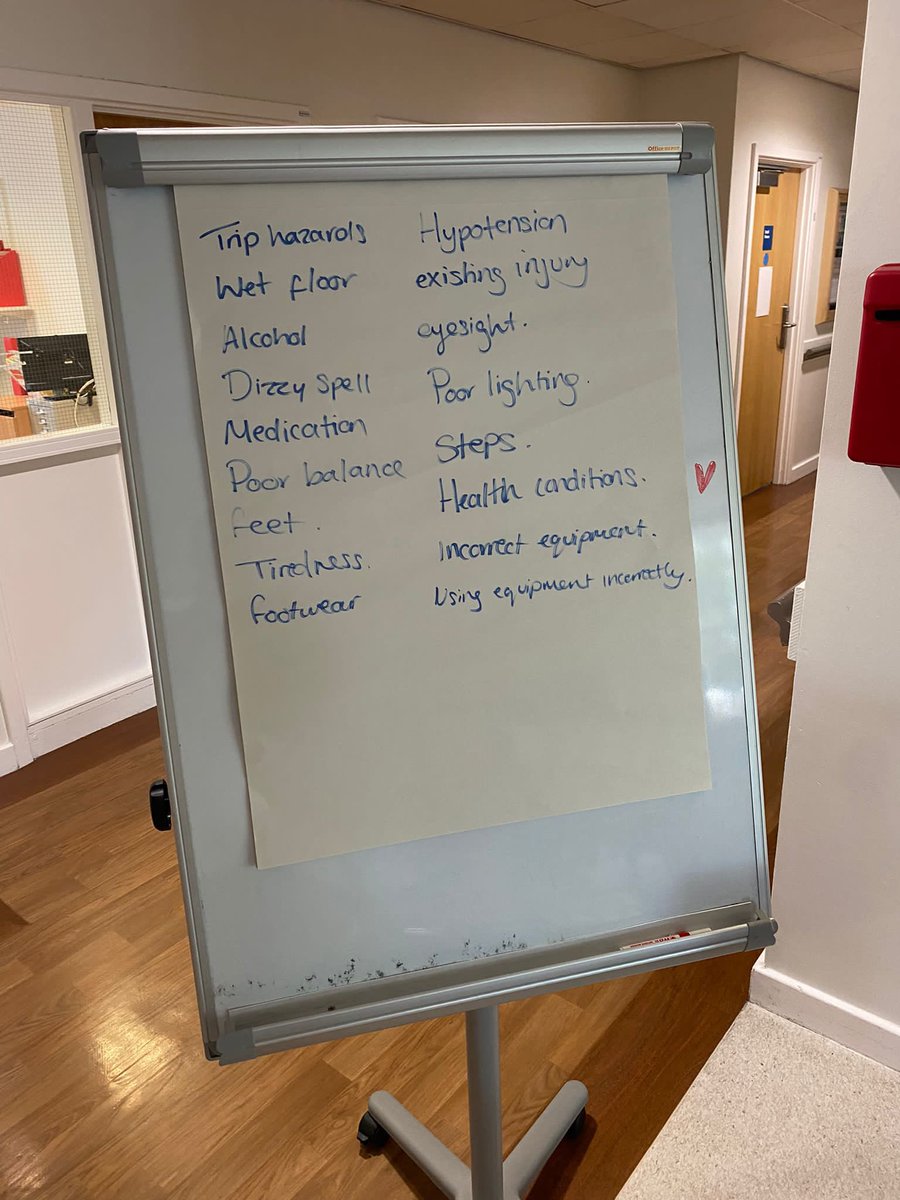 Trip hazards
Wet floor
Alcohol
Dizzy spell
Medication
Poor balance
feet.
Tiredness.
footwear
Hypotension
existing injury
eyesight.
Poor lighting.
Steps.
Health conditions.
Incorrect equipment.
Using equipment incorrectly.